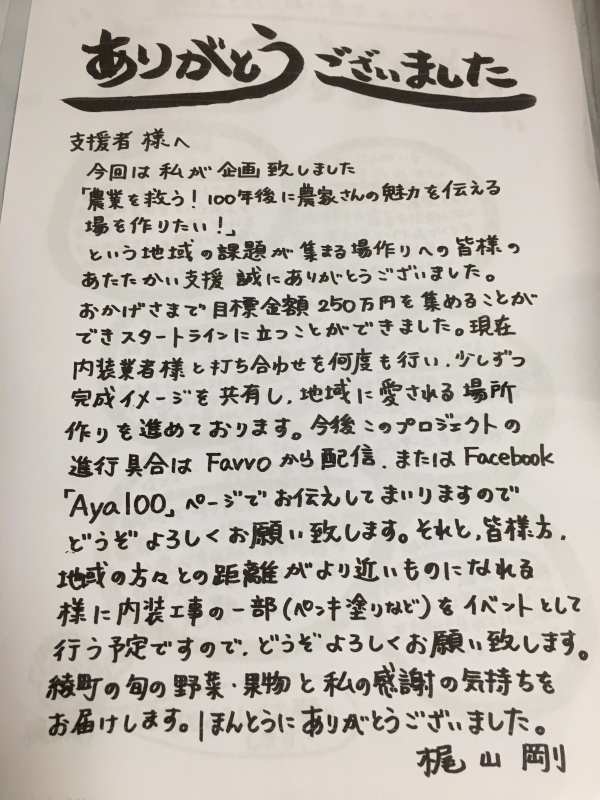 ありがとうございました
支援者 様へ
今回は 私が 企画 致しました
「農業を救う！100年後に農家さんの魅力を伝える
場を作りたい！」
という地域の課題が集まる場作りへの皆様の
あたたかい支援 誠にありがとうございました。
おかげさまで目標金額250万円を集めることが
できスタートラインに立つことができました。現在
内装業者様と打ち合わせを何度も行い、少しずつ
完成イメージを共有し、地域に愛される場所
作りを進めております。今後このプロジェクトの
進行具合はFavvoから配信、またはFacebook
「Aya100」ページでお伝えしてまいりますので
どうぞよろしくお願い致します。それと、皆様方、
地域の方々との距離がより近いものになれる
様に内装工事の一部(ペンキ塗りなど)をイベントとして
行う予定ですので、どうぞよろしくお願い致します。
綾町の旬の野菜・果物と私の感謝の気持ちを
お届けします。ほんとうにありがとうございました。
梶山 剛